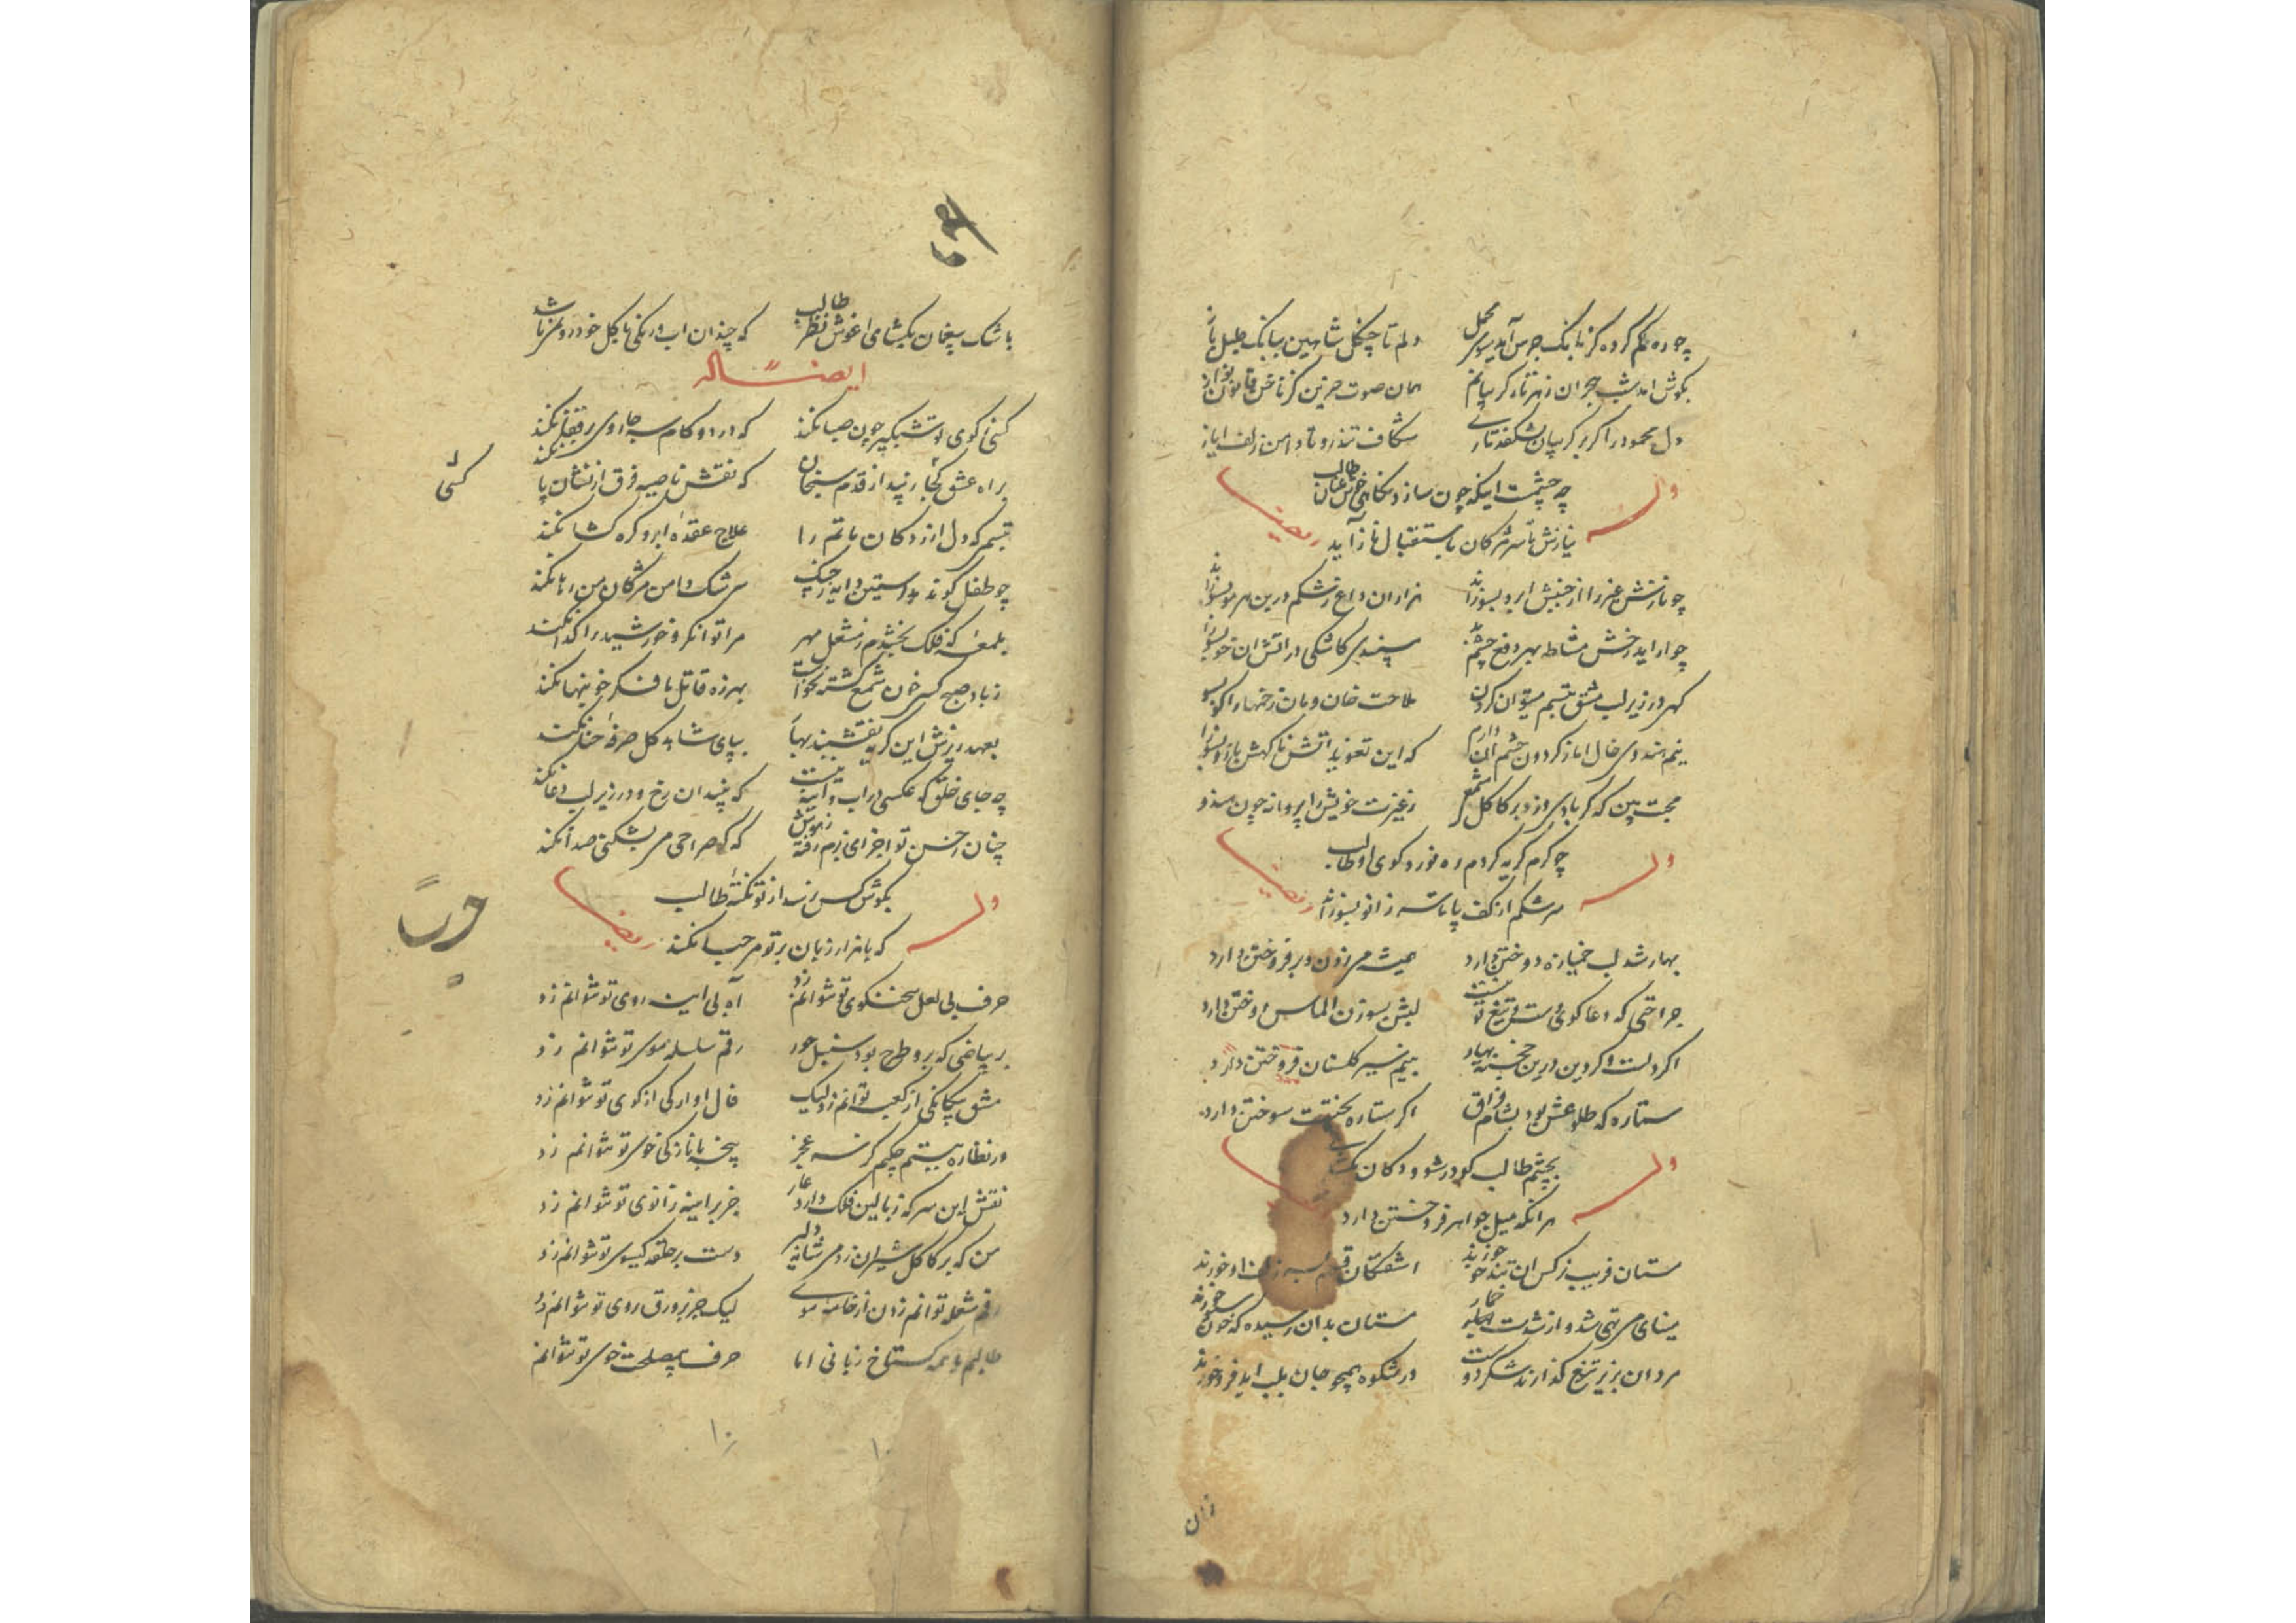 چو ره گم کرده کز بانک جرس آید سوی محمل دلم تا چنگل شاهین ببانک طبل باز
بگوش امد شب هجران زهر تار گریبانم همان صوت حزین کز ناخن قانون نواز
دل محمود را گر بر گریبان بشکفد تاری شکاف تا دامن زلف ایاز
وله چه چشمست اینکه چون سازد نگاهی طالب
نیازش تا سر مژگان باستقبال ناز آید ایضا
چو نازش غیر را از جنبش ابرو بسوزاند هزاران داغ رشکم در بن هر مو بسوزاند
چو اراید رخش مشاطه بهر دفع چشم سپندی کاشکی در اتش ان خو بسوزاند
گهی در زیر لب مشق تبسم میتوان کردن ملاحت خان و مان زخمها را
نیم هندوی خال اما ز گردون چشم آن دارم که این تعویذ اتش بازو بسوزاند
محبت بین که گر بادی وزد بر کاکل شمع ز غیرت خویش را پروانه چون
وله چو گرم گریه گردم ره نورد کوی او طالب
سرشکم از کف پا تا سر زانو بسوزاند ایضا
بهار شد لب خمیازه دوختن دارد همیشه می زدن و بر فروختن دارد
جراحتی که دعا گوی دست و تیغ تو نیست لبش بسوزن الماس دوختن دارد
اگر دلست و گر دین درین خجسته بهار بنیم سیر گلستان فروختن دارد
ستاره که طلوعش بود بشام فراق اگر ستاره بختست سوختن دارد
وله بچشم طالب گو در شو و دکان بگشای
هر انکه میل جواهر فروختن دارد
مستان فریب نرگس ان تند خو خورند اشفتگان قسم بسر زلف او خورند
مینای می تهی شد و از شدت خمار مستان بدان رسیده که خون سبو خورند
مردان بزیر تیغ گذارند شکر دوست ور شکوه همچو جان بلب اید فرو خورند
باشک بیغمان بگشای اغوش نظر طالب که چندان اب و رنگی با گل خودرو نمیباشد
ایضا له
کسی بکوی تو شبگیر چون صبا نکند که در دو گام سه جا روی بر قفا نکند
براه عشق کجا رنید از قدم سنجان که نقش ناصیه فرق از نشان پا نکند
تبسمی که دل ازردگان ماتم را علاج عقده ابرو گره گشا نکند
چو طفل کو ندهد استین دایه ز چنک سرشک دامن مژگان من رها نکند
بلمعه که فلک بخشدم ز مشعل مهر مرا توانگر و خورشید را گدا نکند
ز باد صبح کسی خون شمع کشته نخواست بهرزه قاتل ما فکر خونبها نکند
بعهد ریزش این گریه نقشبند بهار بپای شاهد گل صرفه حنا نکند
چه جای خلق که عکسی در اب و آینه نیست که بیند ان رخ و در زیر لب دعا نکند
چنان ز حسن تو اجزای بزم رفته ز هوش که گر صراحی می بشکنی صدا نکند
وله بگوش کس نرسد از تو نکته طالب
که با هزار زبان بر تو مرحبا نکند ایضا
حرف بی لعل سخنگوی تو نتوانم زد آه بی اینه روی تو نتوانم زد
بر بیاضی که برو طرح بود سنبل حور رقم سلسله موی تو نتوانم زد
مشق بیگانگی از کعبه توانم زد لیک فال اوارگی از کوی تو نتوانم زد
در نظاره ببستم چکنم کز سر عجز پنجه با نازکی خوی تو نتوانم زد
نقش این سر که ز بالین فلک دارد عار جز بر اینه زانوی تو نتوانم زد
من که بر کاکل شیران زدمی شانه دلیر دست بر حلقه گیسوی تو نتوانم زد
رقم شعله توانم زدن از خامه موی لیک جز بر ورق روی تو نتوانم زد
طالبم با همه گستاخ زبانی اما حرف بی مصلحت خوی تو نتوانم